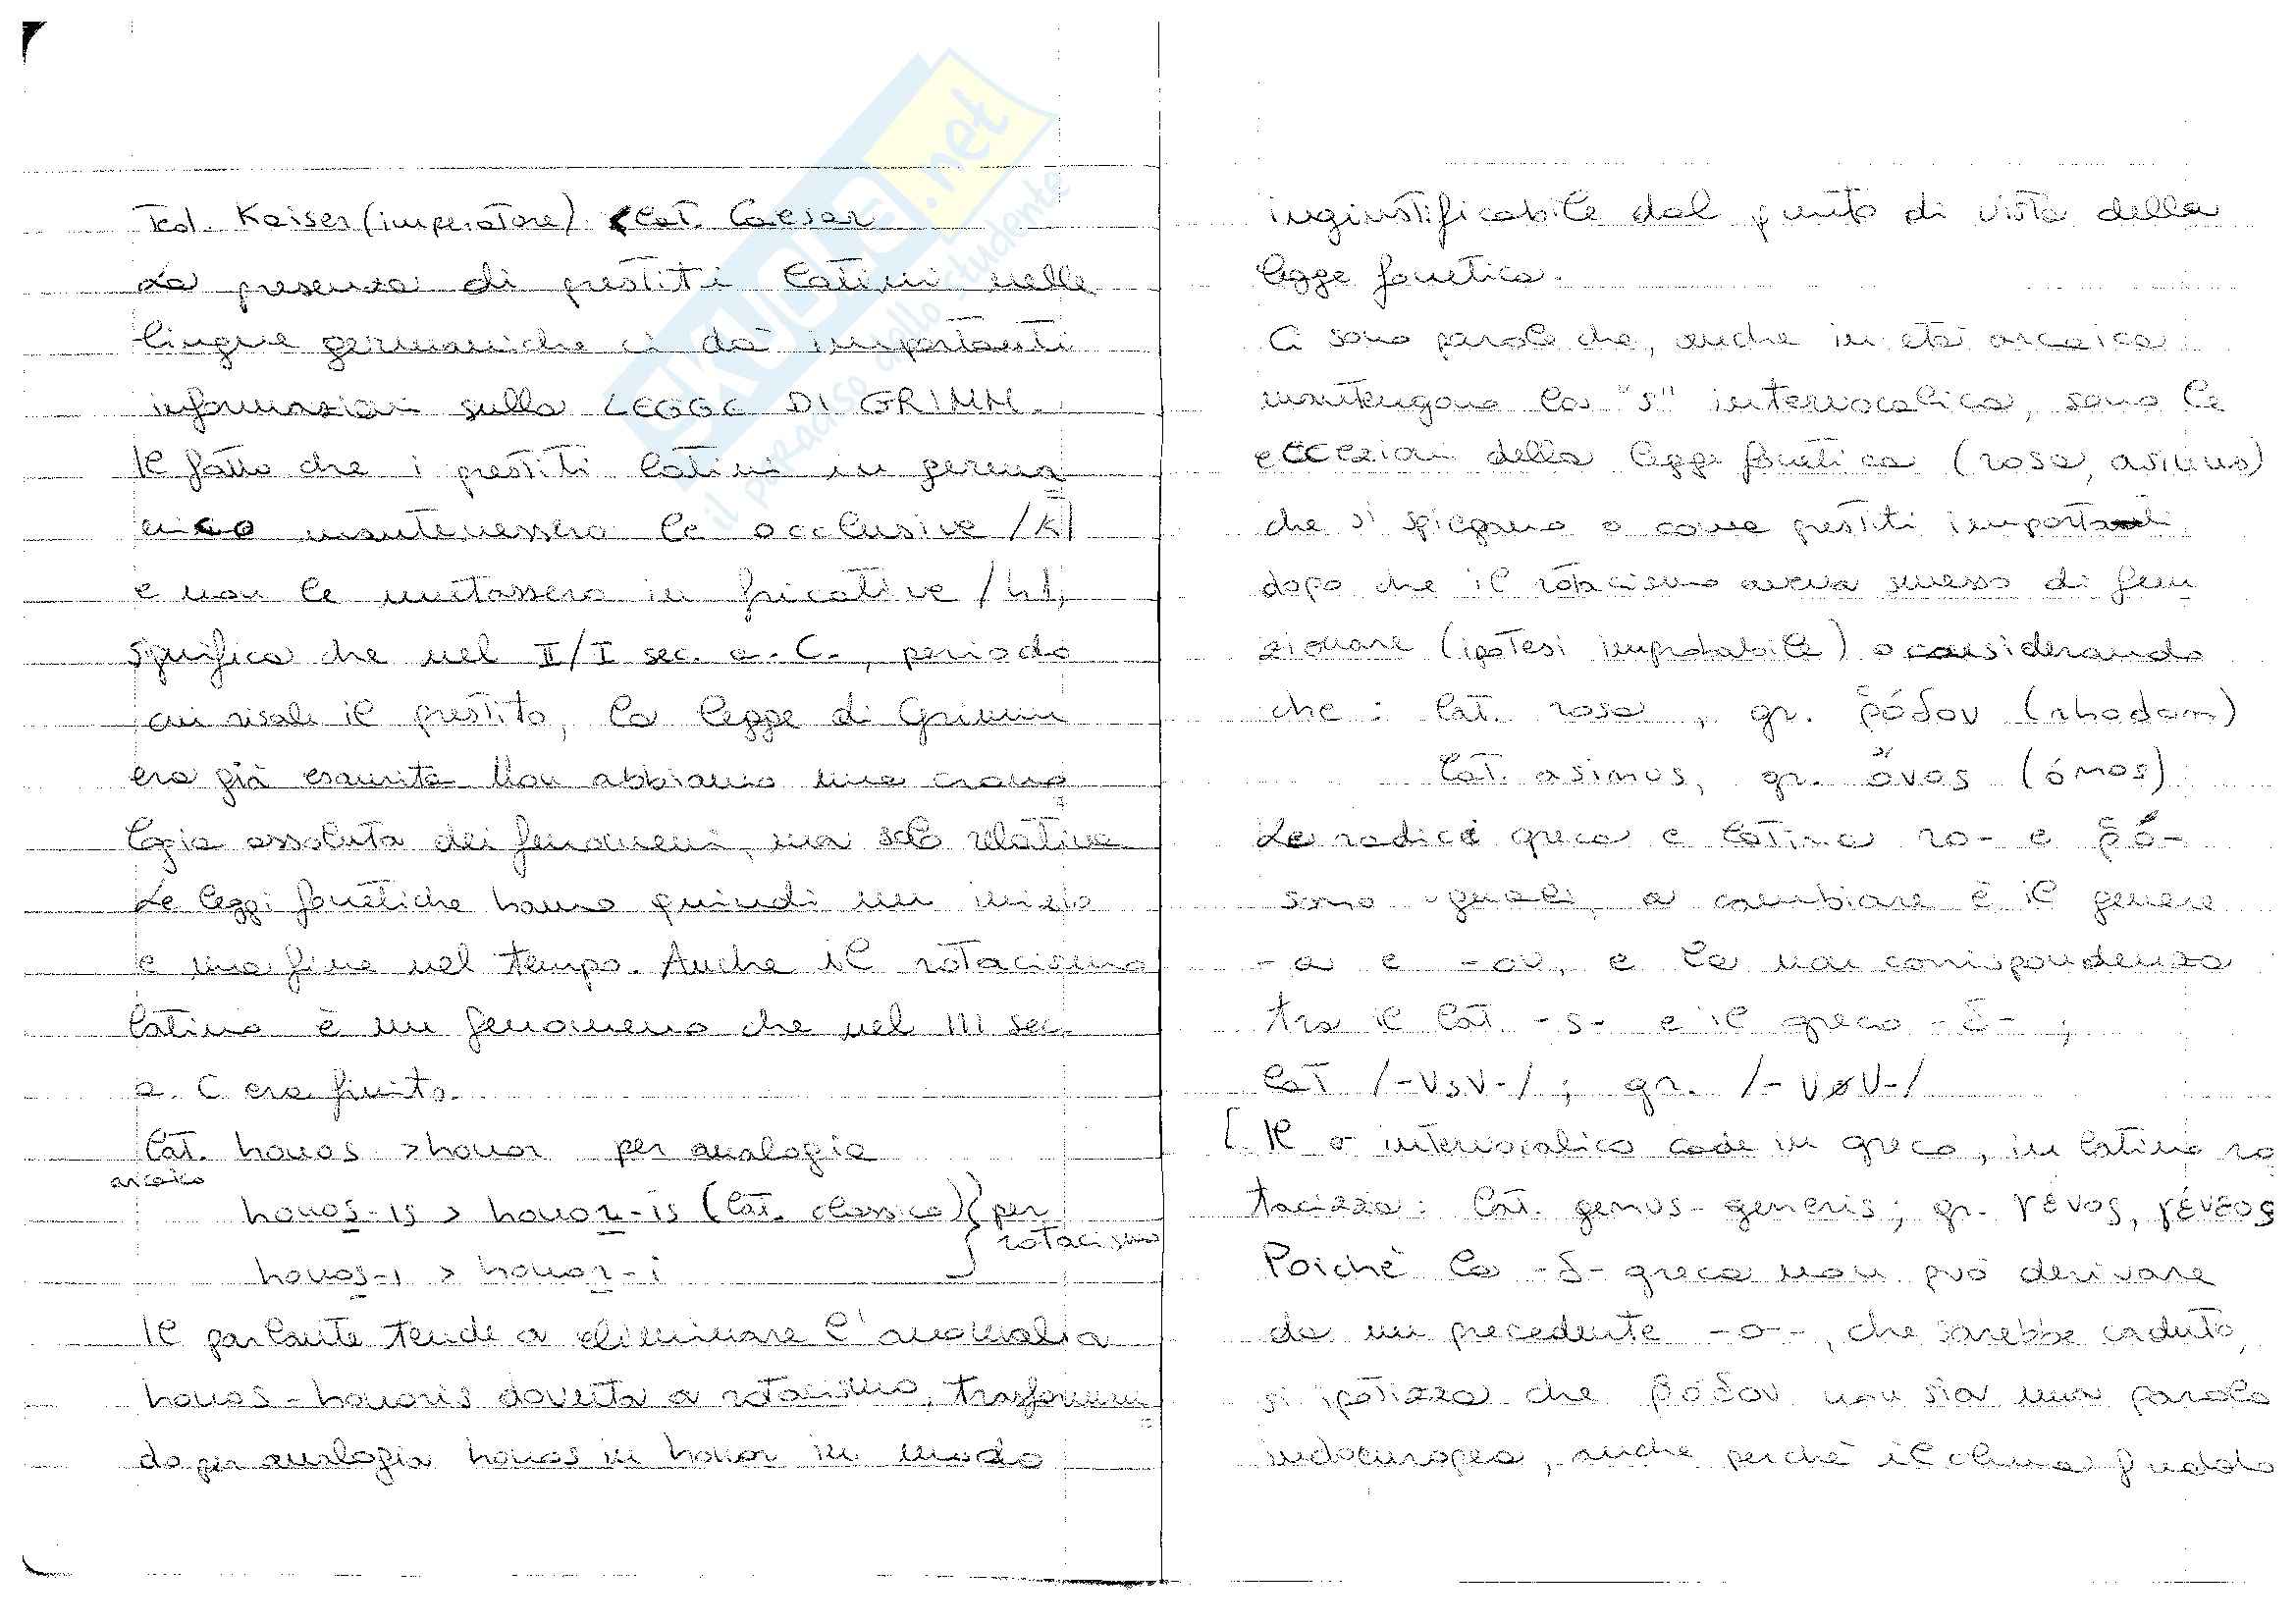 Ted. Kaiser (imperatore) < lat. Caesar
La presenza di prestiti latini nelle
lingue germaniche ci dà importanti
informazioni sulla LEGGE DI GRIMM.
Il fatto che i prestiti latini in germa
nico mantenessero le occlusive /K/
e non le mutassero in fricative /h/,
significa che nel II/I sec. a. C., periodo
cui risale il prestito, la legge di Grimm
era già esaurita. Non abbiamo una crono
logia assoluta dei fenomeni, ma solo relativa
Le leggi fonetiche hanno quindi un inizio
e una fine nel tempo. Anche il rotacismo
latino è un fenomeno che nel III sec.
a. C era finito.
Lat. honos > honor per analogia
arcaico
honos-is > honor-is (lat. classico) } per
rotacismo
honos-i > honor-i
Il parlante tende a eliminare l'anomalia
honos - honoris dovuta a rotacismo, trasforman
do per analogia honos in honor in modo
ingiustificabile dal punto di vista della
legge fonetica.
Ci sono parole che, anche in età arcaica
mantengono la "s" intervocalica, sono le
eccezioni della legge fonetica (rosa, asinus)
che si spiegano o come prestiti importati
dopo che il rotacismo aveva smesso di fun
zionare (ipotesi improbabile) o considerando
che : lat. rosa, gr. ῥόδον (rhodon)
lat. asinus, gr. ὄνος (ónos)
Le radici greca e latina ro- e ῥό-
sono uguali, a cambiare è il genere
-a e -ον, e la non corrispondenza
tra il lat. -s- e il greco -δ- ;
lat /-VsV-/ ; gr. /-VøV-/
[ Il σ intervocalico cade in greco, in latino ro
tacizza : lat. genus - generis ; gr. γένος, γένεος
Poichè la -δ- greca non può derivare
da un precedente -σ-, che sarebbe caduto,
si ipotizza che ῥόδον non sia una parola
indoeuropea, anche perchè il clima freddo
il paradiso dello studente
SKUOLA.net